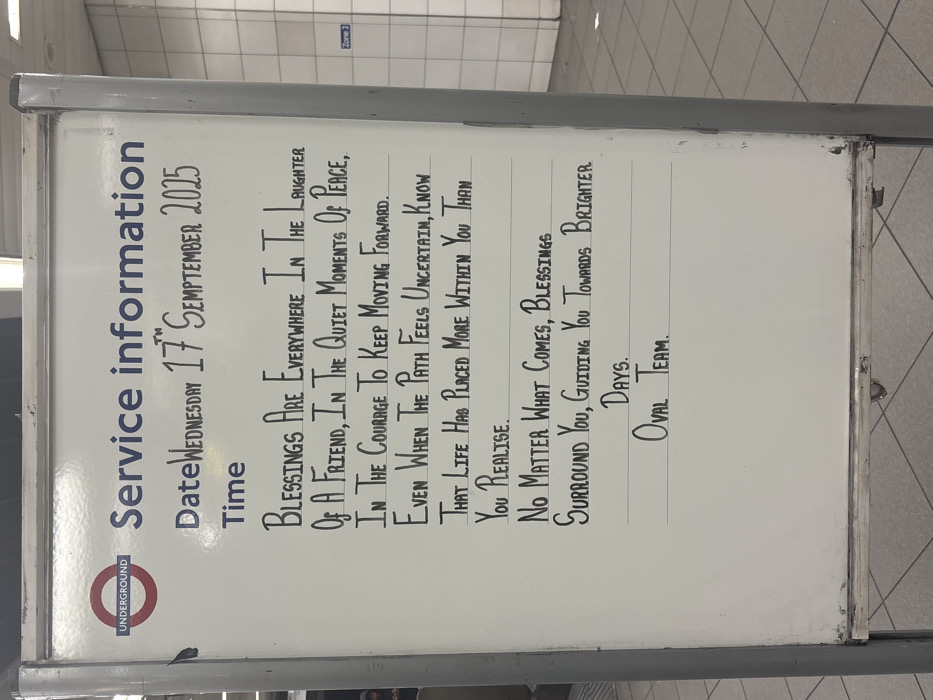 Zone 2
UNDERGROUND
Service information
Date WEDNESDAY 17TH SEMPTEMBER 2025
Time
BLESSINGS ARE EVERYWHERE IN THE LAUGHTER
OF A FRIEND, IN THE QUIET MOMENTS OF PEACE,
IN THE COURAGE TO KEEP MOVING FORWARD.
EVEN WHEN THE PATH FEELS UNCERTAIN, KNOW
THAT LIFE HAS PLACED MORE WITHIN YOU THAN
YOU REALISE.
NO MATTER WHAT COMES, BLESSINGS
SURROUND YOU, GUIDING YOU TOWARDS BRIGHTER
DAYS.
OVAL TEAM.